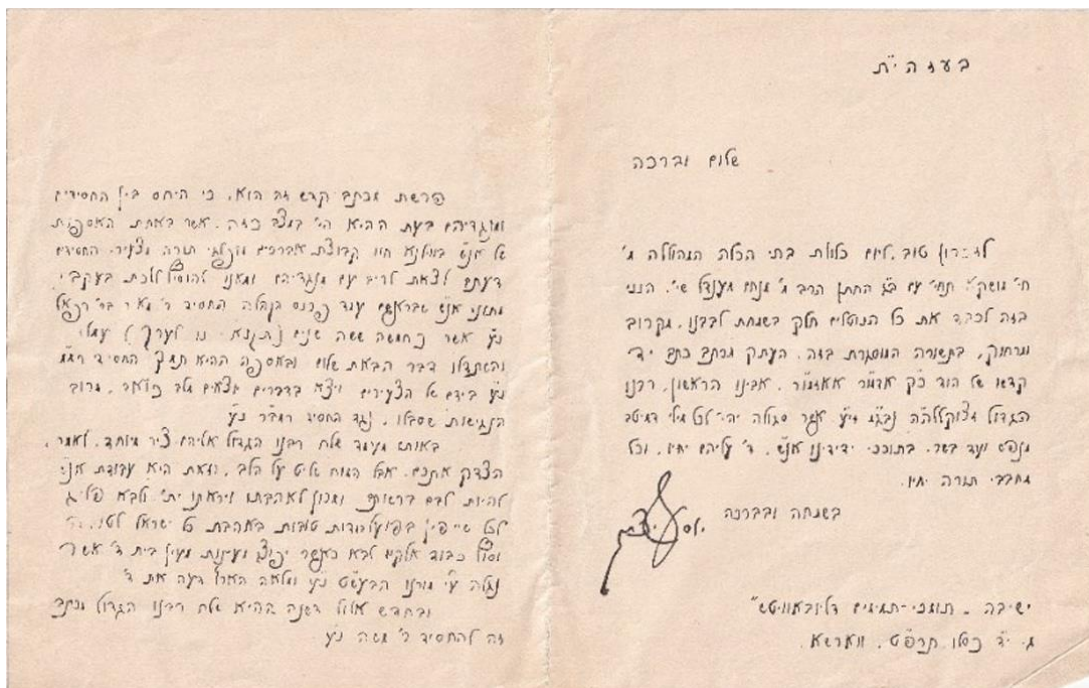 בעזהי"ת
שלום וברכה
לזכרון טוב, ליום כלולת בתי הכלה המהוללה מ'
חי' מושקא תחי' עם ב"ג החתן הרב מ' מנחם מענדל שי', הנני
בזה לכבד את כל הנוטלים חלק בשמחת לבבנו, מקרוב
ומרחוק, בתשורה המוסגרת בזה. העתק מכתב כתב יד
קדשו של הוד כ"ק אדמו"ר אאזמו"ר, אבינו הראשון, רבנו
הגדול זצוקללה"ה נבג"מ זי"ע אשר סגולה יהי' לכל מילי דמיטב
מנפש ועד בשר, בתוככי ידידינו אנ"ש, ד' עליהם יחיו, וכל
מחבבי תורה יחיו.
בשמחה ובברכה
יוסף יצחק
ישיבה - תומכי-תמימים דליובאוויטש"
ג' י"ד כסלו תרפ"ט, ווארשא.
פרשת מכתב קדש זה הוא, כי היחס בין החסידים
ומנגדיהם בעת ההיא הי' במצב כזה, אשר באחת האספות
של אנ"ש בווילנא חוו קבוצת אברכים מופלגי תורה מצעירי החסידים
דעתם לצאת לריב עם מנגדיהם ומאנו להוסיף ללכת בעקבי
מתוני אנ"ש שבראשם עמד פרנס בקהלה החסיד ר' מאיר בר' רפאל
נ"ע אשר כחמשה ששה שנים (תקנ"א - נו לערך) עמלו
והשתדלו דבר הבאת שלום ובאספה ההיא תמך החסיד
נ"ע בידם של הצעירים ויצא בדברים נמצאים בלב כואב, מרוב
הנגישות שסבלו, נגד החסיד רמב"ר נ"ע
באותו מעמד שלח רבנו הגדול אליהם ציר מיוחד, לאמר,
הצדק אתכם, אבל המוח שליט על הלב, וזאת היא עבודת אנ"ש
להיות לבם ברשותם ומכון לאהבתו ויראתו ית' ולבא פליג
לכל שייפין בפועל ומדות טובות באהבת כל ישראל
וסוף כבוד אלקים לבא כאשר יפוצו מעינות מעין בית ד' אשר
נגלה ע"י מורנו הבעש"ט נ"ע ומלאה הארץ דעה את ד'
ובחדש אלול בשנה ההיא שלח רבנו הגדול מכתב
זה להחסיד ר' משה נ"ע